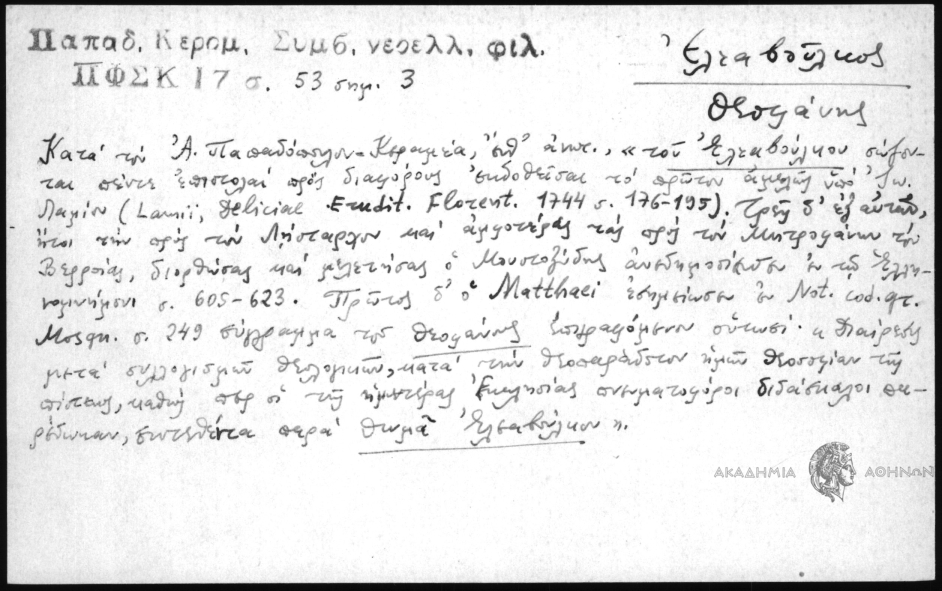 Παπαδ. Κεραμ. Συμβ. νεοελλ. φιλ.
ΠΦΣΚ 17 σ. 53 σημ. 3
Ἐλεαβοῦλκος
Θεοφάνης
Κατὰ τὸν Ἀ. Παπαδόπουλον-Κεραμέα, ἔνθ' ἀνωτ., « τοῦ Ἐλεαβούλκου σώζον-
ται πέντε ἐπιστολαὶ πρὸς διαφόρους ἐκδοθεῖσαι τὸ πρῶτον ἀμελῶς ὑπὸ Ἰω.
Λαμίου (Lamii, Deliciae Erudit. Florent. 1744 σ. 176-195). Τρεῖς δ' ἐξ αὐτῶν,
ἤτοι τὴν πρὸς τὸν Λήσταρχον καὶ ἀμφοτέρας τὰς πρὸς τὸν Μητροφάνην τὸν
Βερροίας, διορθώσας καὶ μελετήσας ὁ Μουστοξύδης ἀνεδημοσίευσεν ἐν τῷ Ἑλλη-
νομνήμονι σ. 605-623. Πρῶτος δ' ὁ Matthaei ἐσημείωσεν ἐν Not. cod. gr.
Mosqu. σ. 249 σύγγραμμα τοῦ Θεοφάνους ἐπιγραφόμενον οὕτωσί· « Διαίρεσις
μετὰ συλλογισμῶν θεολογικῶν, κατὰ τὴν θεοπαράδοτον ἡμῶν θεοσοφίαν τῆς
πίστεως, καθὼς περ οἱ τῆς ἡμετέρας Ἐκκλησίας πνευματοφόροι διδάσκαλοι πα-
ρέδωκαν, συντεθέντα παρὰ Θωμᾶ Ἐλεαβούλκου ».
ΑΚΑΔΗΜΙΑ ΑΘΗΝΩΝ